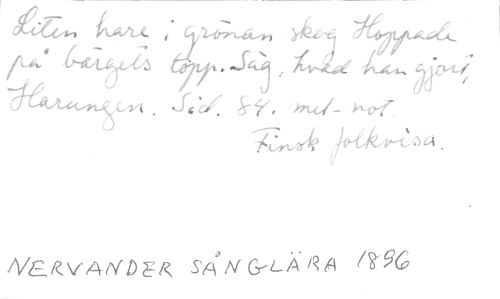 Liten hare i grönan skog Hoppade
på bärgets topp. Säg, hvad han gjort,
Harungen. Sid. 84. mel-not.
Finsk folkvisa.
NERVANDER SÅNGLÄRA 1896